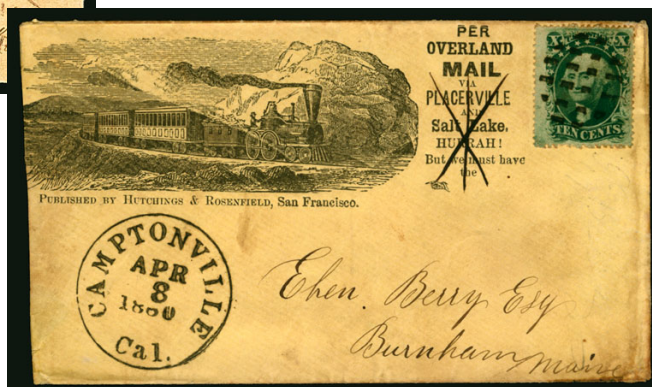 PER
OVERLAND
MAIL
VIA
PLACERVILLE
AND
Salt Lake,
HURRAH!
But we must have
the
X X
TEN CENTS
PUBLISHED BY HUTCHINGS & ROSENFIELD, San Francisco.
CAMPTONVILLE
APR
8
1860
Cal.
Eben. Berry Esq
Burnham Maine